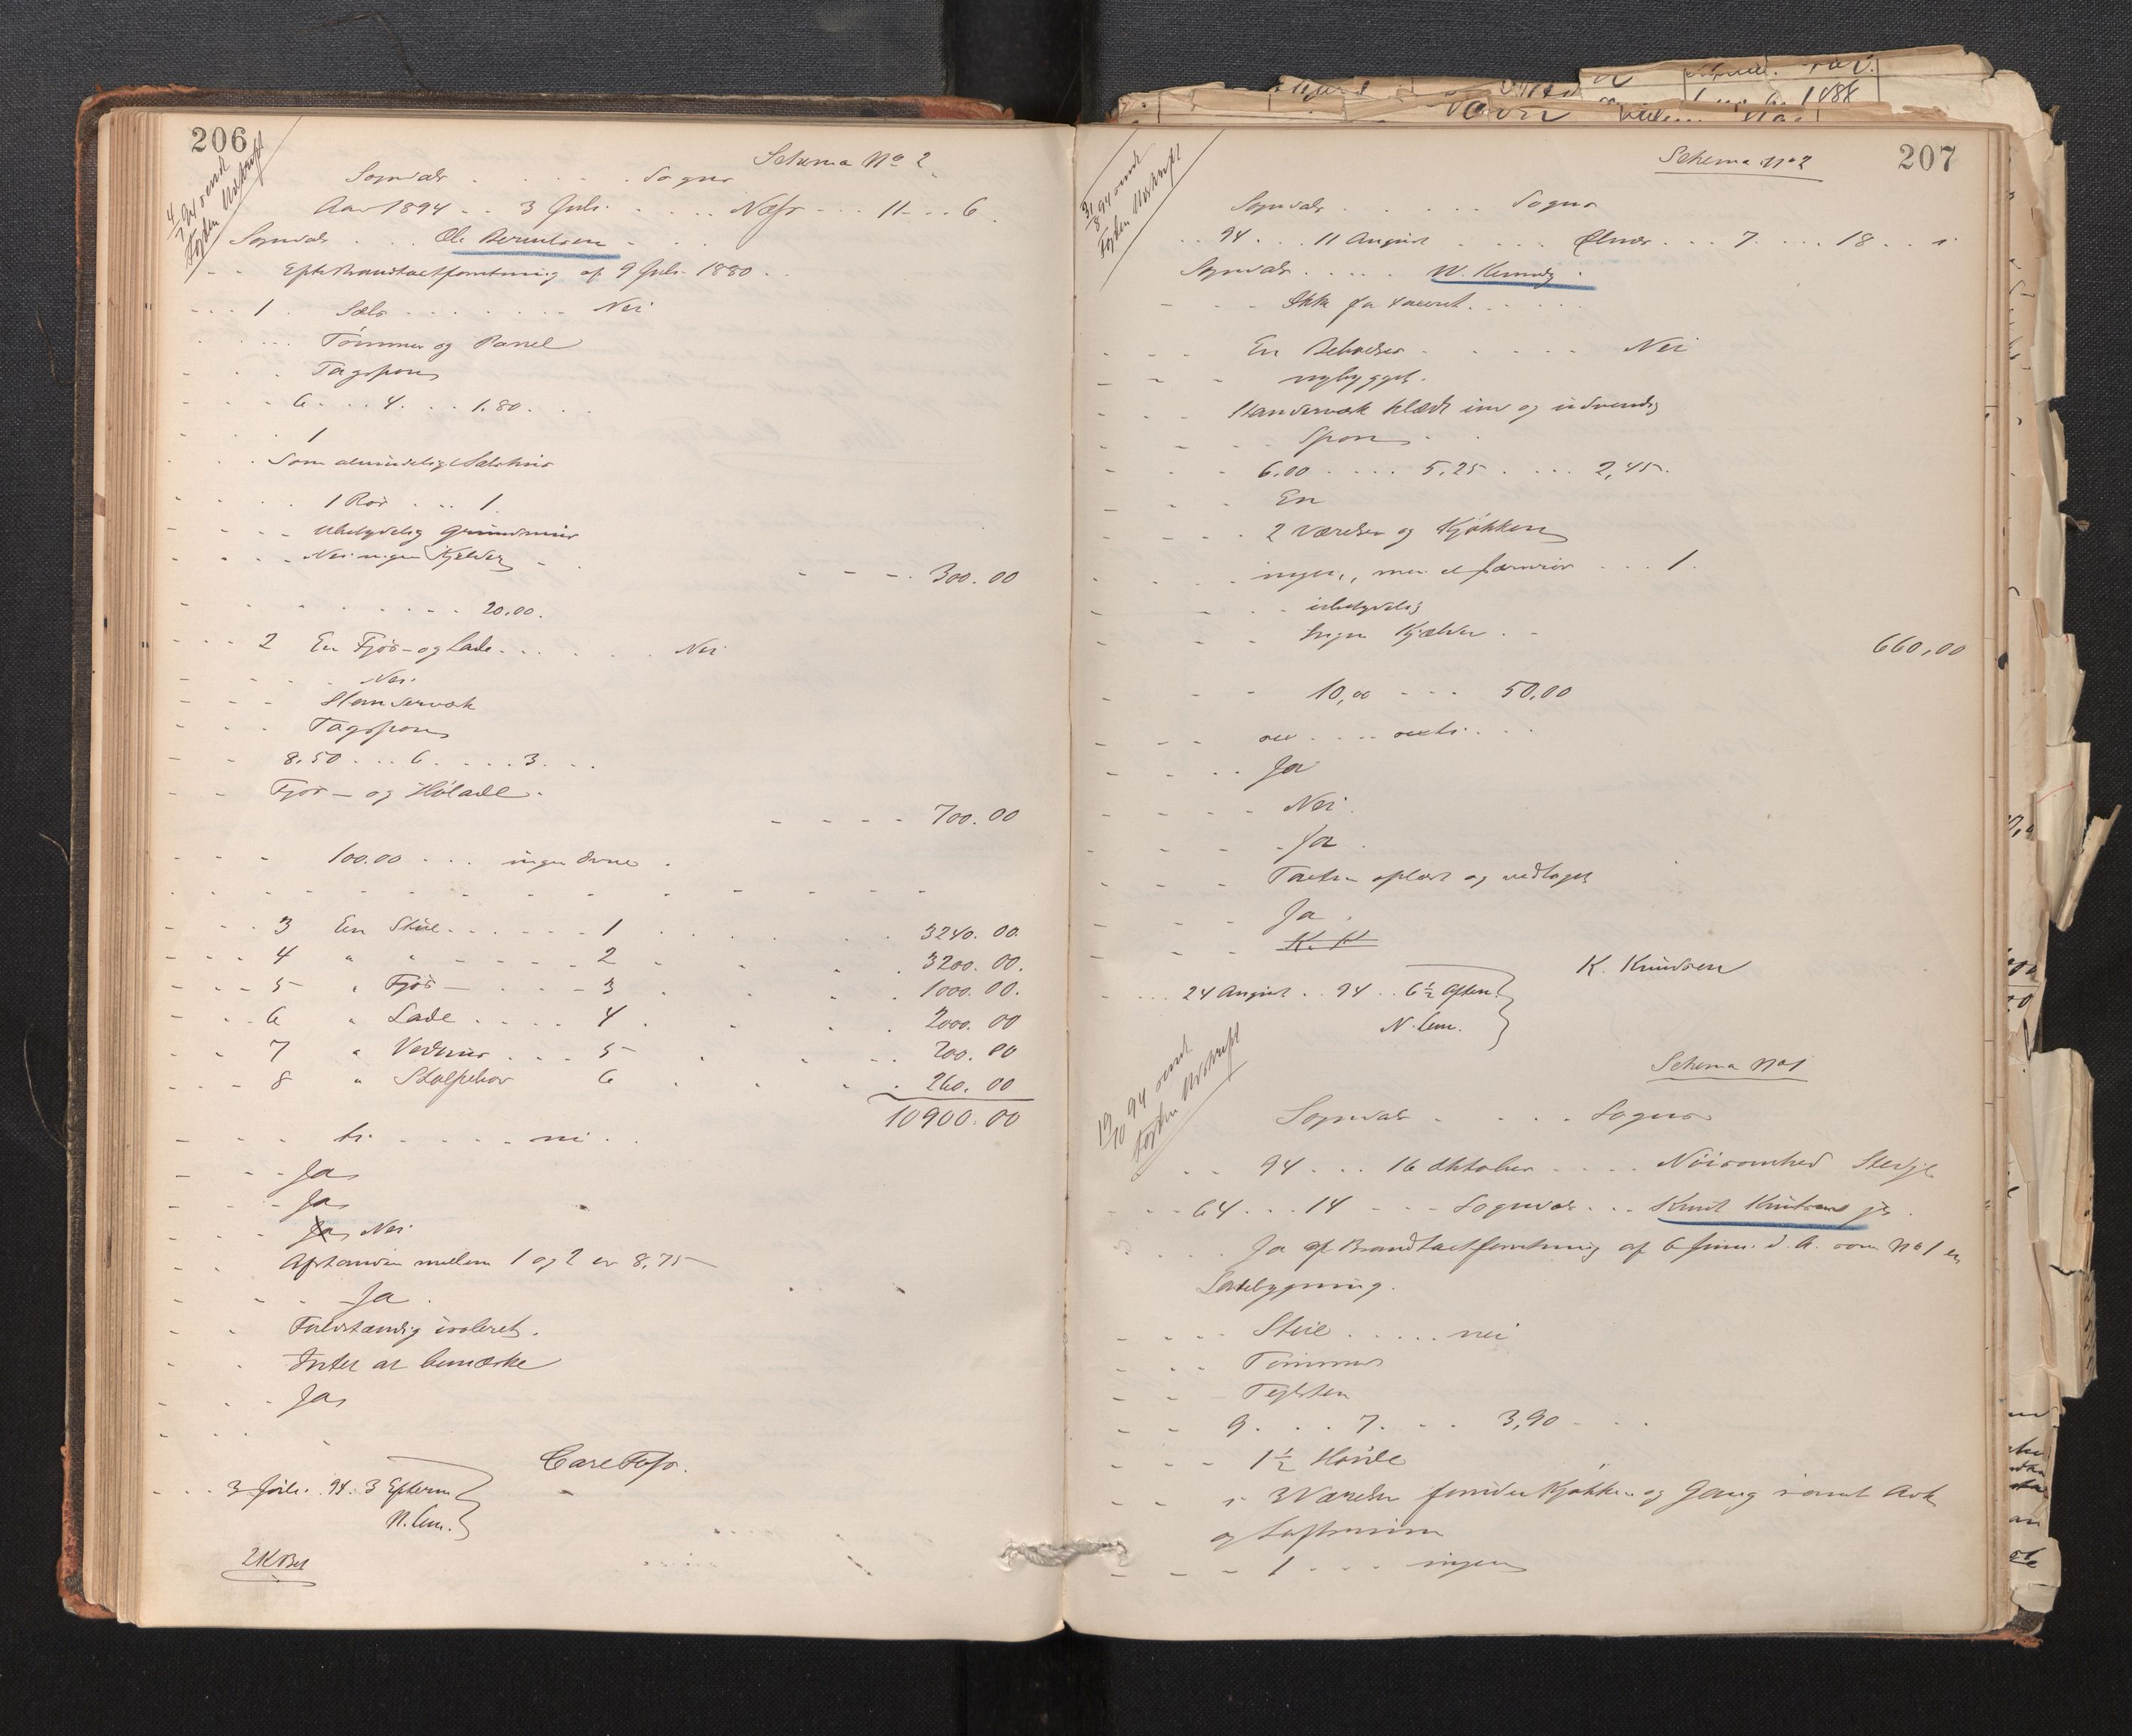 206
4/7 94 sendt
Fogden Udskrift
Schema No 2
Sogndals . . . . . Sogns
Aar 1894 . . 3 Juli . . . . . Næss . . . 11 . . . 6
Sogndals . . . Ole Berentsen . . .
Efter Brandtaxtforretning af 9 Juli 1880 . .
. . . 1 . Sælo . . . . . . . Nei
Tømmer og Panel
Tagspon
6 . . . 4 . . . 1.80 . . .
1
Som almindelig Sælehus
1 Rør . . . 1
Ubetydelig Grundmuur
Nei ingen Kjelder
- - - . 300.00
. . . . . . 20.00.
2 En Fjøs- og Lade . . . . . . Nei
Nei.
Standerværk
Tagspon
8.50 . . . 6 . . . . 3 . . .
Fjøs- og Hølade.
- - - - 700.00
100.00 . . . ingen Ovne .
3 En Stue . . . . . . 1 . . . . 3240.00.
4 " " . . . . . . 2 . . . . 3200.00.
5 " Fjøs . . . . 3 . . . . 1000.00.
6 " Lade . . . . 4 . . . . 2000.00
7 " Vedhus . . . 5 . . . . 200.00
8 " Stolpebod 6 . . . . 260.00
10900.00
ti . . . . . ni . .
Ja
Ja
Ja Nei
Afstanden mellem 1 og 2 er 8,75
Ja .
Fuldstændig isoleret.
Intet at bemærke
Ja
Carl Foss.
3 Juli . 94 . 3 Efterm
N. Lem.
2 K Bet
207
31/8 94 sendt
Fogden Udskrift
Schema No 2
Sogndals . . . . . Sogns
. . 94 . . . 11 August . . . . Ølnæs . . . 7 . . . . 18 . . .
Sogndals . . . . . W. Kennedy .
Ikke før taxeret . . . . .
En Beboelses . . . . . Nei
nybygget.
Standerværk klædt ind og udvendig
Spon
6.00 . . . . 5.25 . . . . 2,45.
En
2 Værelser og Kjøkken
ingen, men et Jærnrør . . . 1.
ubetydelig
Ingen Kjælder . .
660,00
10,00 - - - 50,00
sex . . . . sexti . . .
Ja
Nei.
Ja .
Taxten oplæst og vedtaget
Ja .
K. Knudsen
. . . 24 August . . 94 . . 6½ Efterm.
N. Lem.
19/10 94 sendt
Fogden Udskrift
Schema No 1
Sogndals . . . . . Sogns
. . 94 . . . 16 Oktober . . . . Nøisomhed Stedje
64 . . . 14 - - - Sogndals . . . Knut Knutsen jr.
Ja af Brandtaxtforretning af 6 Juni d. A. som No 1 en
Ladebygning.
Stue . . . . . nei
Tømmer
Teglsten
9 . . . 7 . . . 3,90 . . .
1½ Høide
3 Værelser foruden Kjøkken og Gang samt Ark
og Loftsrum
1 . . . ingen